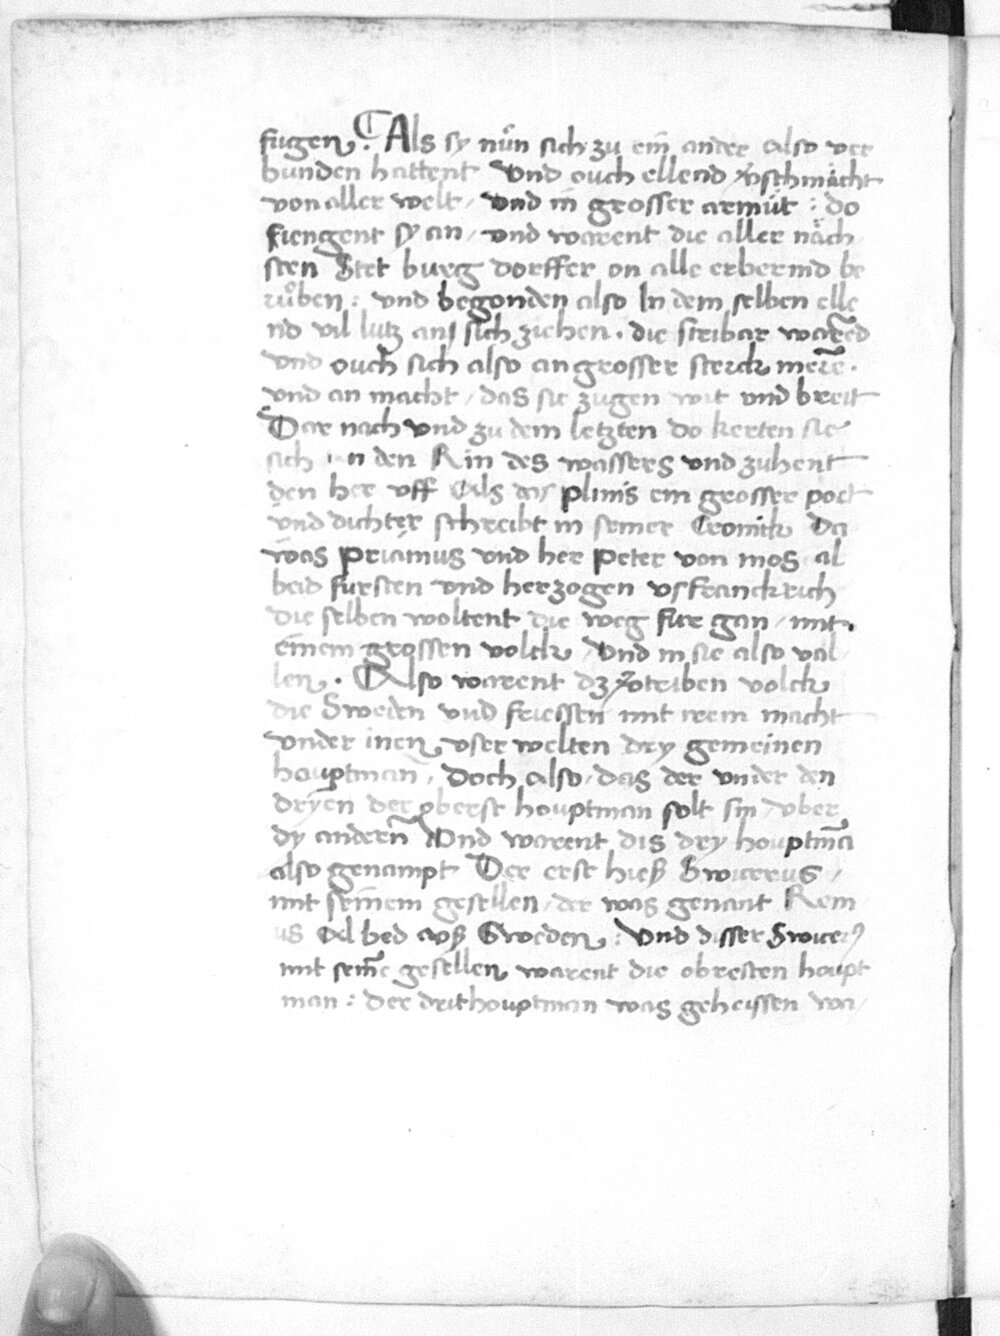 fugen. Als sy nůn sich zu ein ander also ver
bunden hattent Vnd ouch ellend v̾schmächt
von aller welt / vnd in grosser armůt : do
fiengent sy an / vnd warent die aller näch
sten Stet burg dorffer on alle erbermd be
růben : vnd begonden also In dem selben elle
nd vil lutz an sich ziehen . die streibar warēd
vnd ouch sich also an grosser sterck mere .
vnd an macht / das sie zugen wit vnd breit
Dar nach vnd zu dem letzten do kerten sie
sich an den Rin des wassers vnd zuhent
den her vff Als das plinis ein grosser poet
vnd dichter schreibt in seiner Cronick Da
was priamus vnd her peter von mos al
beid fursten vnd herzogen vs franckrich
die selben woltent die weg fur gan / mit
einem grossen volck / Vnd in sie also val
len . Also warent dz v̾triben volck
die Sweden vnd friessen mit irem macht
vnder inen vser welten dry gemeinen
houptman / Doch also / das der vnder den
dryen der oberst houptman solt sin / vber
dy andern Vnd warent dis dry houptmā
also genampt Der erst hieß Swicerus /
mit seinem gesellen / der was genant Rem
us Al bed vß Sweden : Vnd disser Swicerꝰ
mit seinē gesellen warent die obresten houpt
man : der drit houptman was geheissen wa